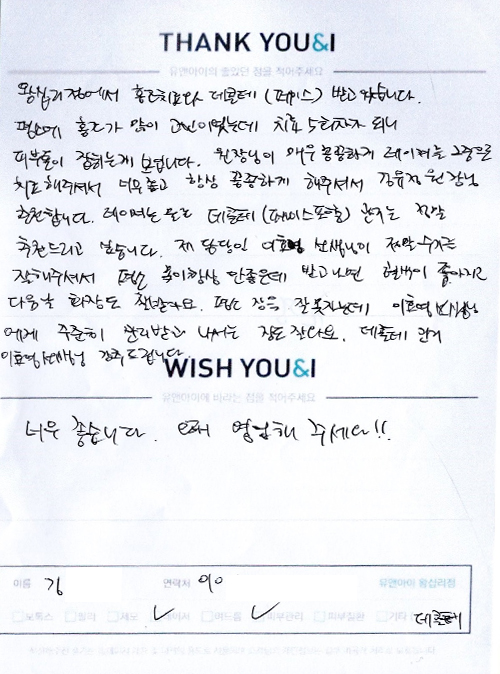 THANK YOU&I
유앤아이의 좋았던 점을 적어주세요
왕십리점에서 홍조치료와 데콜테 (페이스) 받고 있습니다.
평소에 홍조가 많이 고민이었는데 치료 5회차가 되니
피부톤이 잡히는게 보입니다. 원장님이 매우 꼼꼼하게 레이저를
치료해주셔서 너무 좋고 항상 꼼꼼하게 해주셔서 김유정 원장님
추천합니다. 레이저는 물론 데콜테 (페이스포함) 관리는 정말
추천드리고 싶습니다. 제 담당인 이효영 선생님이 정말
잘해주셔서 평소 목이 항상 안좋은데 받고나면 혈색이 좋아지고
다음날 화장도 잘받아요. 평소 잠을 잘못자는데 이효영 선생님
에게 꾸준히 관리받고 나서는 잠도 잘자요. 데콜테
이효영선생님 강추드립니다.
WISH YOU&I
유앤아이에 바라는 점을 적어주세요
너무 좋습니다. 오래 영업해 주세요!!
이름 김 연락처 010 유앤아이 왕십리점
보톡스 필러 제모 레이저 여드름 피부관리 피부질환 기타 데콜테